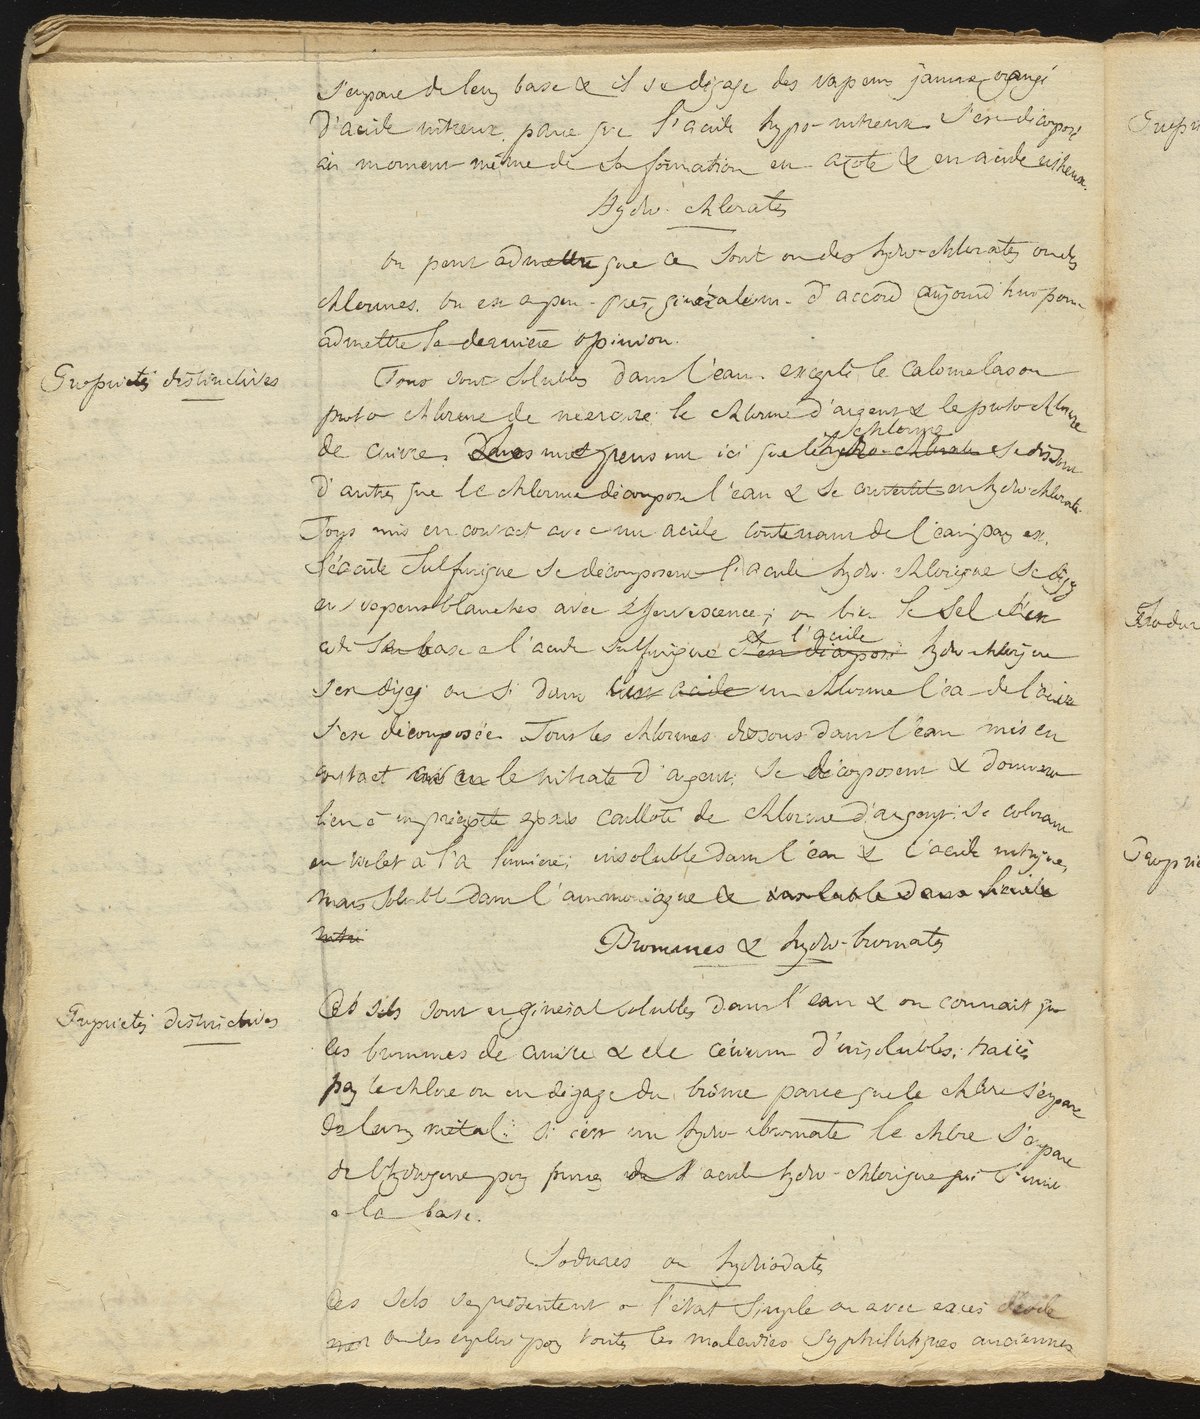 s'empare de leur base & il se dégage des vapeurs jaune orangé
d'acide nitreux parce que l'acide hypo-nitreux s'est décomposé
au moment même de sa formation en azote & en acide nitreux.
Hydro-chlorates
On peut admettre que ce sont ou des hydro-chlorates ou des
chlorures. On est a peu-près généralem. d'accord aujourd'hui pour
admettre la dernière opinion.
Propriétés distinctives
Tous sont solubles dans l'eau. excepté le calomelas ou
proto chlorure de mercure le chlorure d'argent & le proto chlorure
de cuivre. Les uns pensent ici que le hydro-chlorate chlorure se dissout
d'autres que le chlorure décompose l'eau & se convertit en hydro-chlorate.
Tous mis en contact avec un acide contenant de l'eau, par ex.
l'acide sulfurique se décomposent l'acide hydro-chlorique se dégage
en vapeurs blanches avec effervescence; ou bien le sel
cède sa base a l'acide sulfurique s'est décomposé & l'acide hydro-chlorique
s'est dégagé ou si dans un acide un chlorure l'eau de l'acide
s'est décomposée. Tous les chlorures dissous dans l'eau mis en
contact avec le nitrate d'argent, se décomposent & donnent
lieu à un précipité épais cailloté de chlorure d'argent; se colorant
en violet à la lumière; insoluble dans l'eau & l'acide nitrique,
mais soluble dans l'ammoniaque & insoluble dans l'acide
nitri
Bromures & hydro-bromates
Propriétés distinctives
Ces sels sont en général solubles dans l'eau & on connait que
les bromures de cuivre & de cérium d'insolubles; traités
par le chlore on en dégage du brôme parce que le chlore s'empare
de leur métal; si c'est un hydro-bromate le chlore s'empare
de l'hydrogène pour former de l'acide hydro-chlorique qui s'unit
a la base.
Iodures ou hydriodates
Ces sels se présentent a l'état simple ou avec excès d'iode
on les emploie pour toutes les maladies syphilitiques anciennes